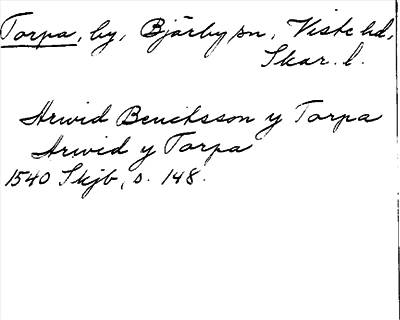 Torpa, by, Bjärby sn, Viste hd,
Skar. l.
Arvid Bencksson y Torpa
Arvid y Torpa
1540 Skjb, s. 148.